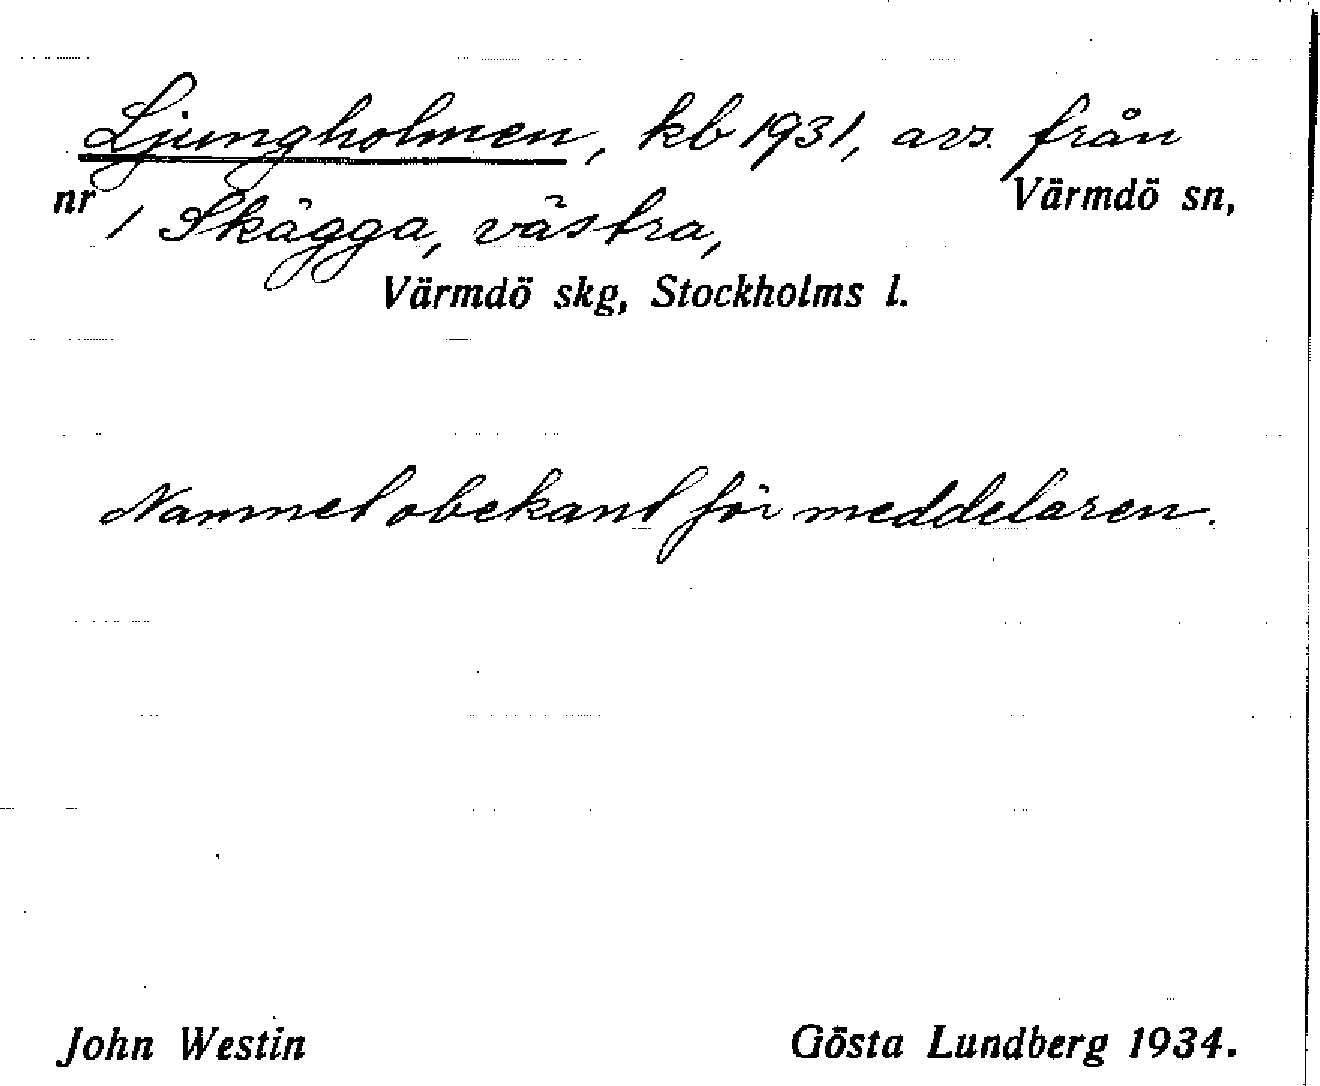 Ljungholmen, kb 1931, avs. från
nr 1 Skägga, västra, Värmdö sn,
Värmdö skg, Stockholms l.
Namnet obekant för meddelaren.
John Westin Gösta Lundberg 1934.